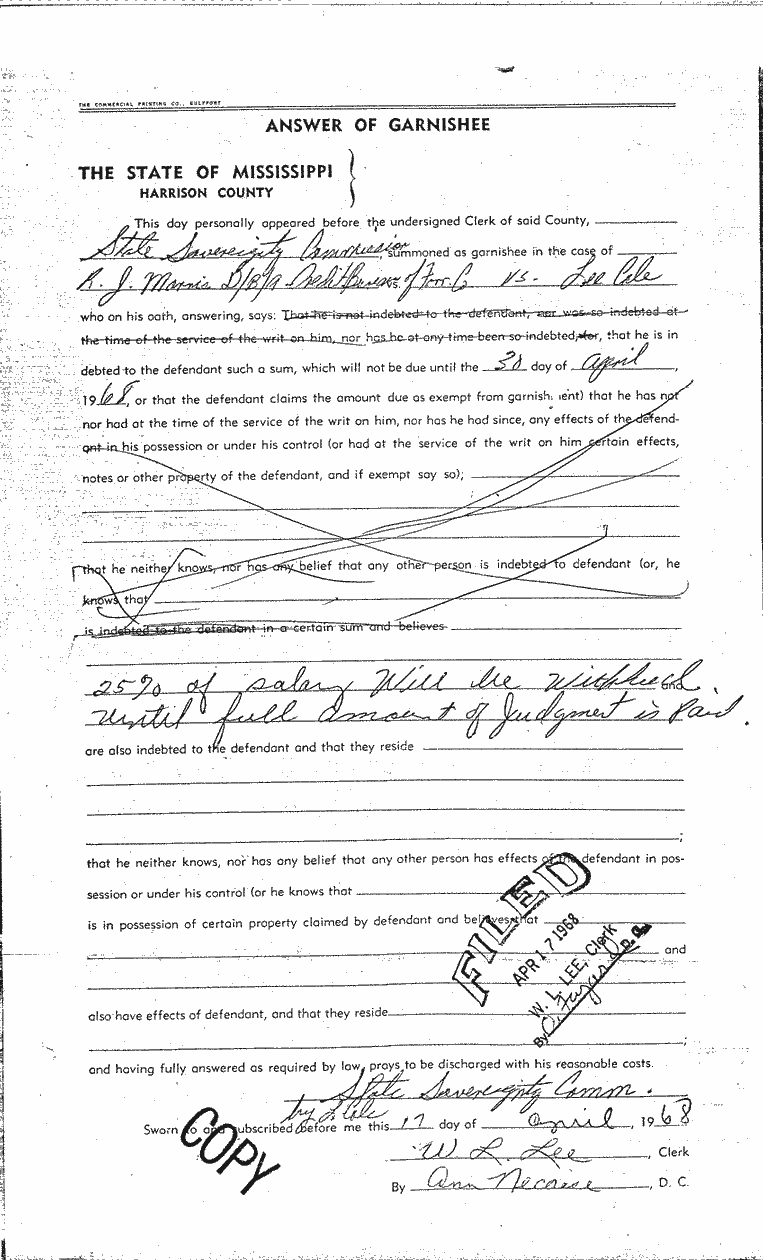 THE COMMERCIAL PRINTING CO., GULFPORT
ANSWER OF GARNISHEE
THE STATE OF MISSISSIPPI
HARRISON COUNTY
This day personally appeared before the undersigned Clerk of said County,
State Sovereignty Commission, summoned as garnishee in the case of
R. J. Morris D/B/A Credit Bureau of Forr. C vs. Lee Cole
who on his oath, answering, says: That he is not indebted to the defendant, nor was so indebted at
the time of the service of the writ on him, nor has he at any time been so indebted, for, that he is in
debted to the defendant such a sum, which will not be due until the 30 day of April,
1968, or that the defendant claims the amount due as exempt from garnishment) that he has not
nor had at the time of the service of the writ on him, nor has he had since, any effects of the defend-
ant in his possession or under his control (or had at the service of the writ on him certain effects,
notes or other property of the defendant, and if exempt say so);
that he neither knows, nor has any belief that any other person is indebted to defendant (or, he
knows that
is indebted to the defendant in a certain sum and believes
25% of salary Will be withheld and
until full amount of Judgment is Paid.
are also indebted to the defendant and that they reside
;
that he neither knows, nor has any belief that any other person has effects of the defendant in pos-
session or under his control (or he knows that
is in possession of certain property claimed by defendant and believes that
and
also have effects of defendant, and that they reside
;
FILED
APR 17 1968
W. L. LEE, Clerk
By D.C.
and having fully answered as required by law, prays to be discharged with his reasonable costs.
State Sovereignty Comm.
by L Cole
Sworn to and subscribed before me this 17 day of April, 1968
COPY
W L Lee, Clerk
By Ann Necaise, D. C.